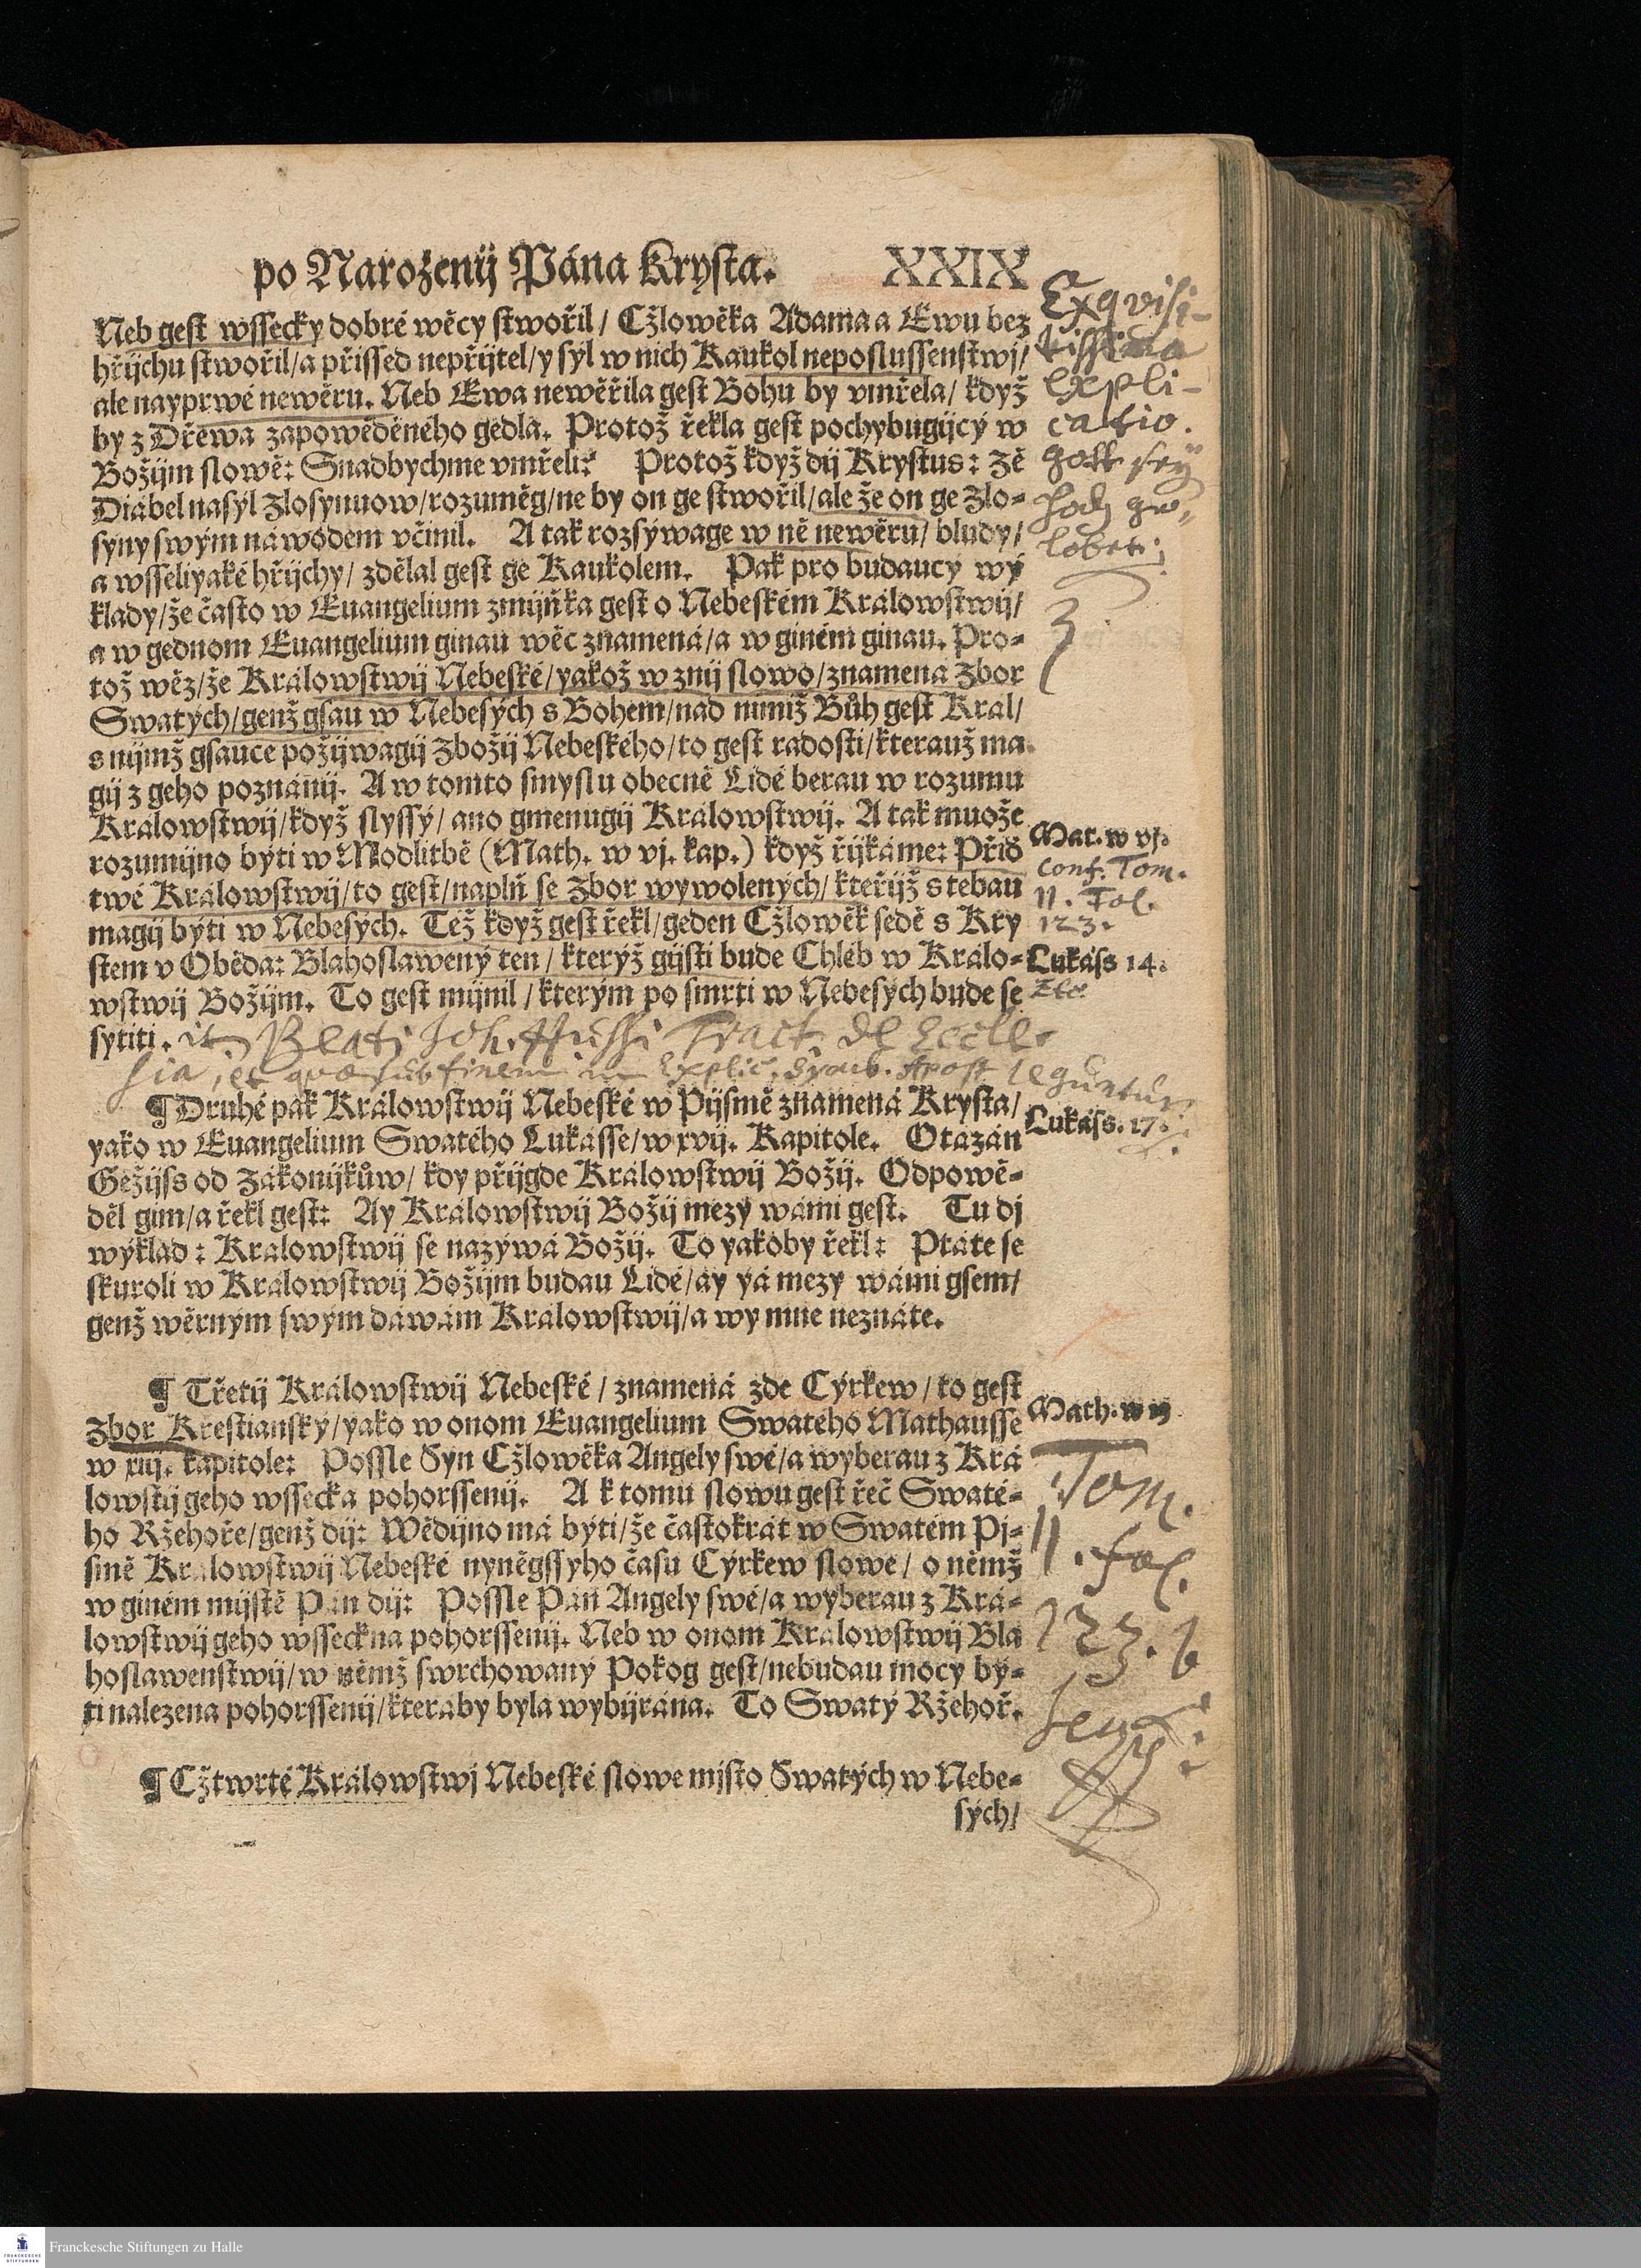 po Naroženij Pána Krysta. XXIX
Neb gest wssecky dobré wěcy stwořil / Čžlowěka Adama a Ewu bez
hřijchu stwořil/a přissed nepřijtel/y syl w nich Kaukol neposlussenstwj/
ale nayprwé newěru. Neb Ewa newěřila gest Bohu by vmřela/ když
by z Dřewa zapowěděného gedla. Protož řekla gest pochybugijcý w
Božijm slowě: Snadbychme vmřeli? Protož když dij Krystus: Zě
Diábel nasyl Zlosynuow/rozuměg/ne by on ge stwořil/ale že on ge Zlo-
syny swým náwodem včinil. A tak rozsýwage w ně newěru/ bludy/
a wsselijaké hřijchy/ zdělal gest ge Kaukolem. Pak pro budaucý wý
klady/že často w Euangelium zmijňka gest o Nebeském Králowstwij/
a w gednom Euangelium ginau wěc znamená/a w giném ginau. Pro-
tož wěz/že Králowstwij Nebeské/yakož w znij slowo/znamená Zbor
Swatých/genž gsau w Nebesých s Bohem/nad nimiž Bůh gest Král/
s nijmž gsauce požijwagij Zbožij Nebeského/to gest radosti/kterauž ma
gij z geho poznánij. A w tomto smyslu obecně Lidé berau w rozumu
Králowstwij/když slyssý/ ano gmenugij Králowstwij. A tak muože
rozumijno býti w Modlitbě (Math. w vj. kap.) když řijkáme: Přiď
twé Králowstwij/to gest/naplň se Zbor wywolených/kteřijž s tebau
magij býti w Nebesých. Též když gest řekl/geden Čžlowěk sedě s Kry
stem v Oběda: Blahoslawený ten / kterýž gijsti bude Chléb w Králo-
wstwij Božijm. To gest mijnil / kterým po smrti w Nebesých bude se
sytiti. it. Beati Joh. Hussi Tract. de Eccle-
sia, et quæ sub finem in Explic. Symb. Apost leguntur
¶ Druhé pak Králowstwij Nebeské w Pijsmě znamená Krysta/
yako w Euangelium Swatého Lukásse/w xvij. Kapitole. Otázán
Gežijss od Zákonijkůw/ kdy přijgde Králowstwij Božij. Odpowě-
děl gim/a řekl gest: Ay Králowstwij Božij mezy wámi gest. Tu dj
wýklad: Králowstwij se nazýwá Božij. To yakoby řekl: Ptáte se
skuroli w Králowstwij Božijm budau Lidé/ay yá mezy wámi gsem/
genž wěrným swým dáwám Králowstwij/a wy mne neznáte.
¶ Třetij Králowstwij Nebeské / znamená zde Cýrkew / to gest
Zbor Krestianský/yako w onom Euangelium Swatého Mathausse
w xiij. kapitole: Possle Syn Čžlowěka Angely swé/a wyberau z Krá
lowstij geho wssecka pohorssenij. A k tomu slowu gest řeč Swaté-
ho Ržehoře/genž dij: Wědijno má býti/že častokrát w Swatém Pj-
smě Králowstwij Nebeské nyněgssyho času Cýrkew slowe / o němž
w giném mijstě Pán dij: Possle Pán Angely swé/a wyberau z Krá-
lowstwij geho wsseckna pohorssenij. Neb w onom Králowstwij Bla
hoslawenstwij/w němž swrchowaný Pokog gest/nebudau mocy bý-
ti nalezena pohorssenij/kteráby byla wybijrána. To Swatý Ržehoř.
¶ Čžtwrté Králowstwj Nebeské slowe mjsto Swatých w Nebe-
sých/
Exqvisi-
tissima
Expli-
catio.
Gott sey
hoch ge-
lobet.
Mat. w vj.
conf. Tom.
II. Fol.
123.
Lukáss 14.
Lukáss. 17.
Math. w
Tom.
II. fol.
123. b